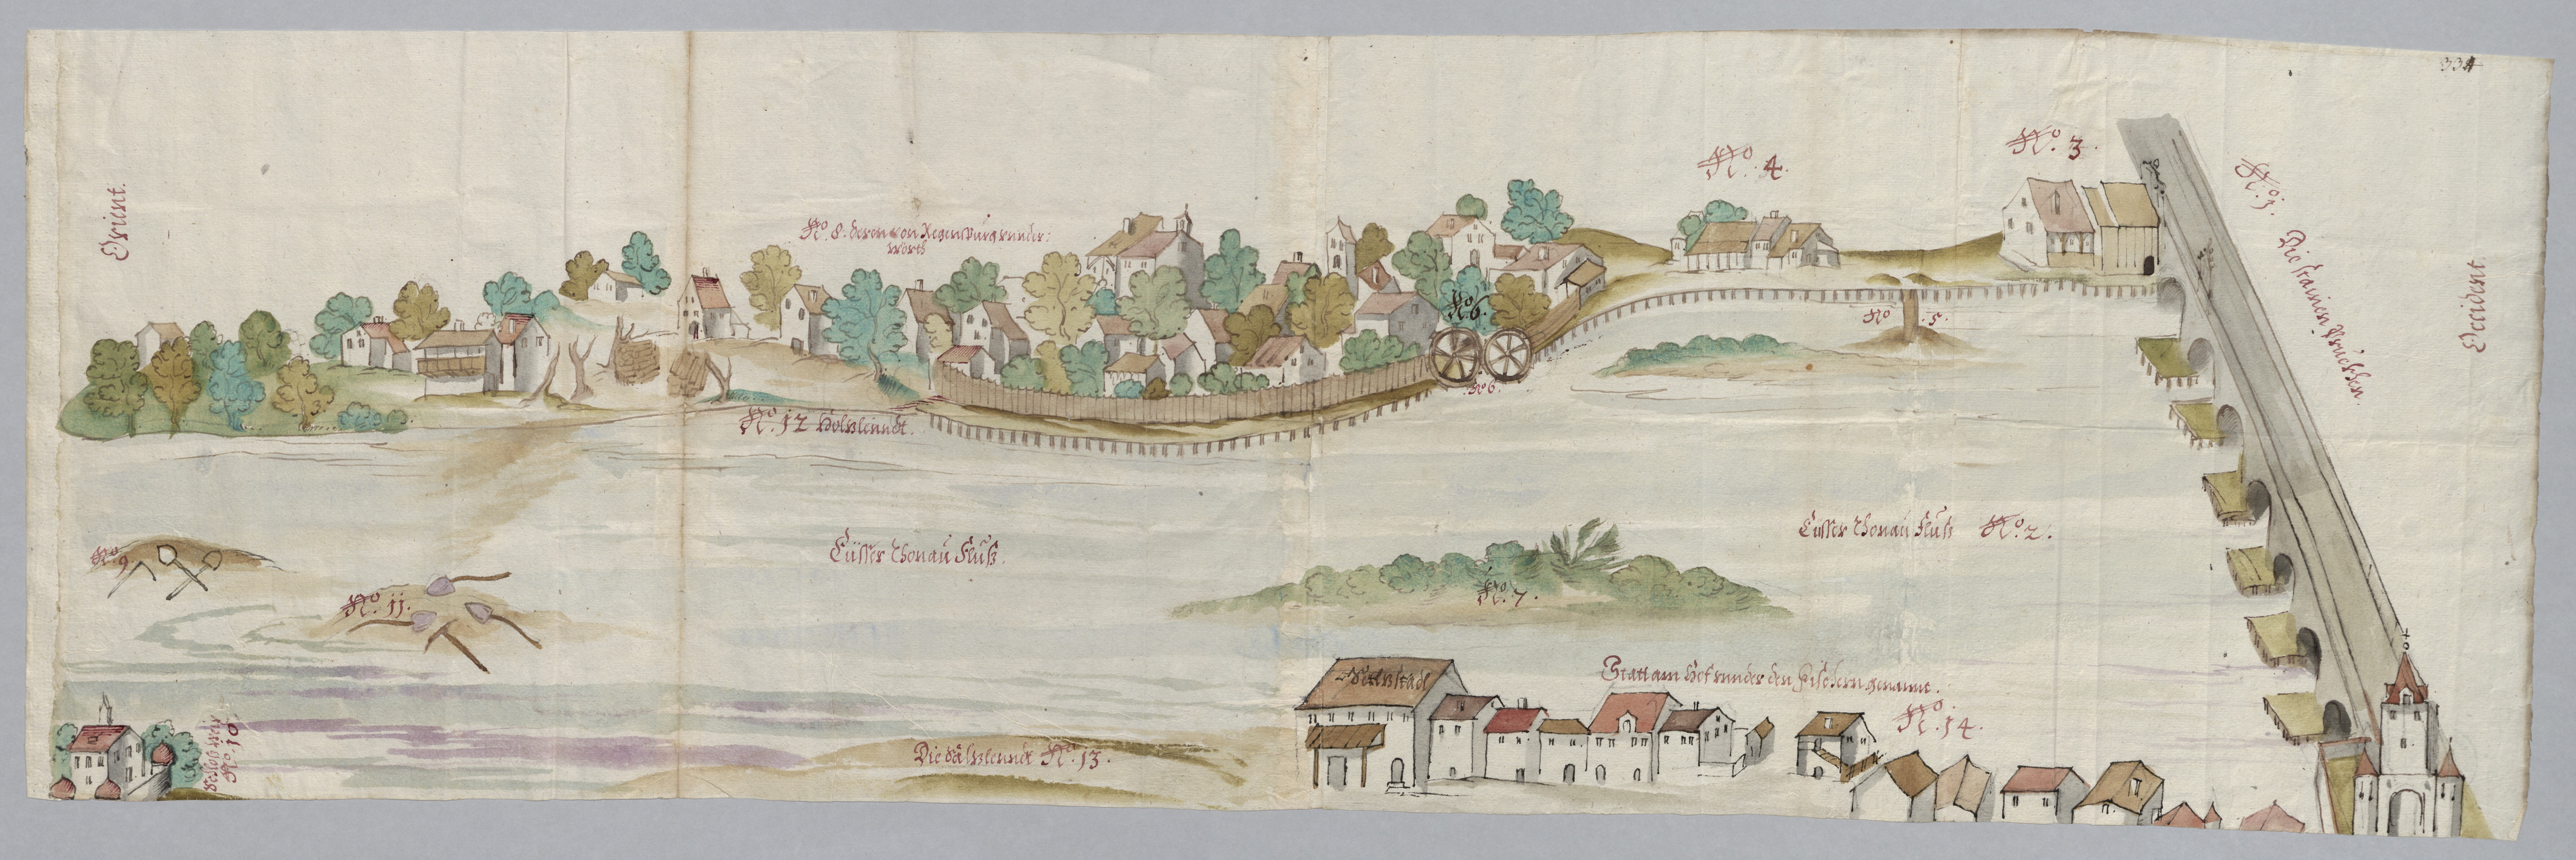 334
Orient.
No. 8. deren von Regenspurg vnder:
wörth
No. 4.
No. 3.
No. 1. Die stainen Pruckhen.
Occident.
No. 5.
No 6.
No 6.
No. 12 Holzlenndt.
Eüsser Thonau Fluß.
Eüsser Thonau Fluß No. 2.
No. 9
No. 11.
No. 7.
Saltzstadl
Statt am Hof vnder den Fischern genannt.
No. 14.
Schloß Weix
No. 10.
Die Saltzlenndt No. 13.